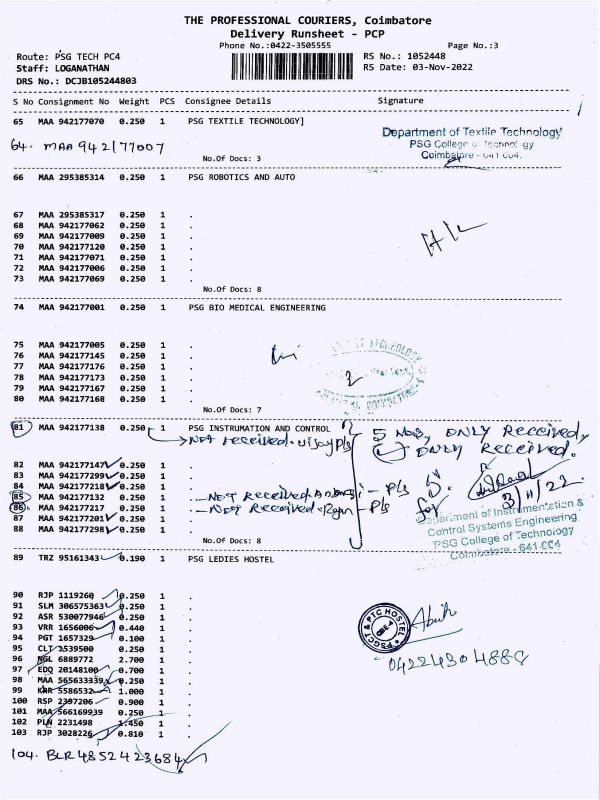 THE PROFESSIONAL COURIERS, Coimbatore
Delivery Runsheet - PCP
Phone No.:0422-3505555
Page No.:3
Route: PSG TECH PC4
RS No.: 1052448
Staff: LOGANATHAN
RS Date: 03-Nov-2022
DRS No.: DCJB105244803
S No Consignment No Weight PCS Consignee Details Signature
65 MAA 942177070 0.250 1 PSG TEXTILE TECHNOLOGY]
Department of Textile Technology
PSG College of Technology
Coimbatore - 641 004.
64. MAA 942177007
No.Of Docs: 3
66 MAA 295385314 0.250 1 PSG ROBOTICS AND AUTO
67 MAA 295385317 0.250 1 .
68 MAA 942177062 0.250 1 .
69 MAA 942177009 0.250 1 .
70 MAA 942177120 0.250 1 .
71 MAA 942177071 0.250 1 .
72 MAA 942177006 0.250 1 .
73 MAA 942177069 0.250 1 .
No.Of Docs: 8
74 MAA 942177001 0.250 1 PSG BIO MEDICAL ENGINEERING
75 MAA 942177005 0.250 1 .
76 MAA 942177145 0.250 1 .
77 MAA 942177176 0.250 1 .
78 MAA 942177173 0.250 1 .
79 MAA 942177167 0.250 1 .
80 MAA 942177168 0.250 1 .
No.Of Docs: 7
81 MAA 942177138 0.250 1 PSG INSTRUMATION AND CONTROL
Not received. Vijay pls
5 Nos, ONLY Received,
ONLY Received.
82 MAA 942177147 0.250 1 .
83 MAA 942177299 0.250 1 .
84 MAA 942177218 0.250 1 .
85 MAA 942177132 0.250 1 . Not Received - Pls
86 MAA 942177217 0.250 1 . Not Received - Pls
87 MAA 942177201 0.250 1 .
88 MAA 942177298 0.250 1 .
for
3/11/22
Department of Instrumentation &
Control Systems Engineering
PSG College of Technology
Coimbatore - 641 004
No.Of Docs: 8
89 TRZ 95161343 0.190 1 PSG LEDIES HOSTEL
90 RJP 1119260 0.250 1 .
91 SLM 306575363 0.250 1 .
92 ASR 530077946 0.250 1 .
93 VRR 1656006 0.440 1 .
94 PGT 1657329 0.100 1 .
95 CLT 2539500 0.250 1 .
96 MGL 6889772 2.700 1 .
97 EDQ 20148100 0.700 1 .
98 MAA 565633339 0.250 1 .
99 KAR 5586532 1.000 1 .
100 RSP 2397206 0.900 1 .
101 MAA 566169939 0.250 1 .
102 PLN 2231498 1.450 1 .
103 RJP 3028226 0.810 1 .
PSGCT & PTC HOSTEL
04224304888
104. BLR4852423684